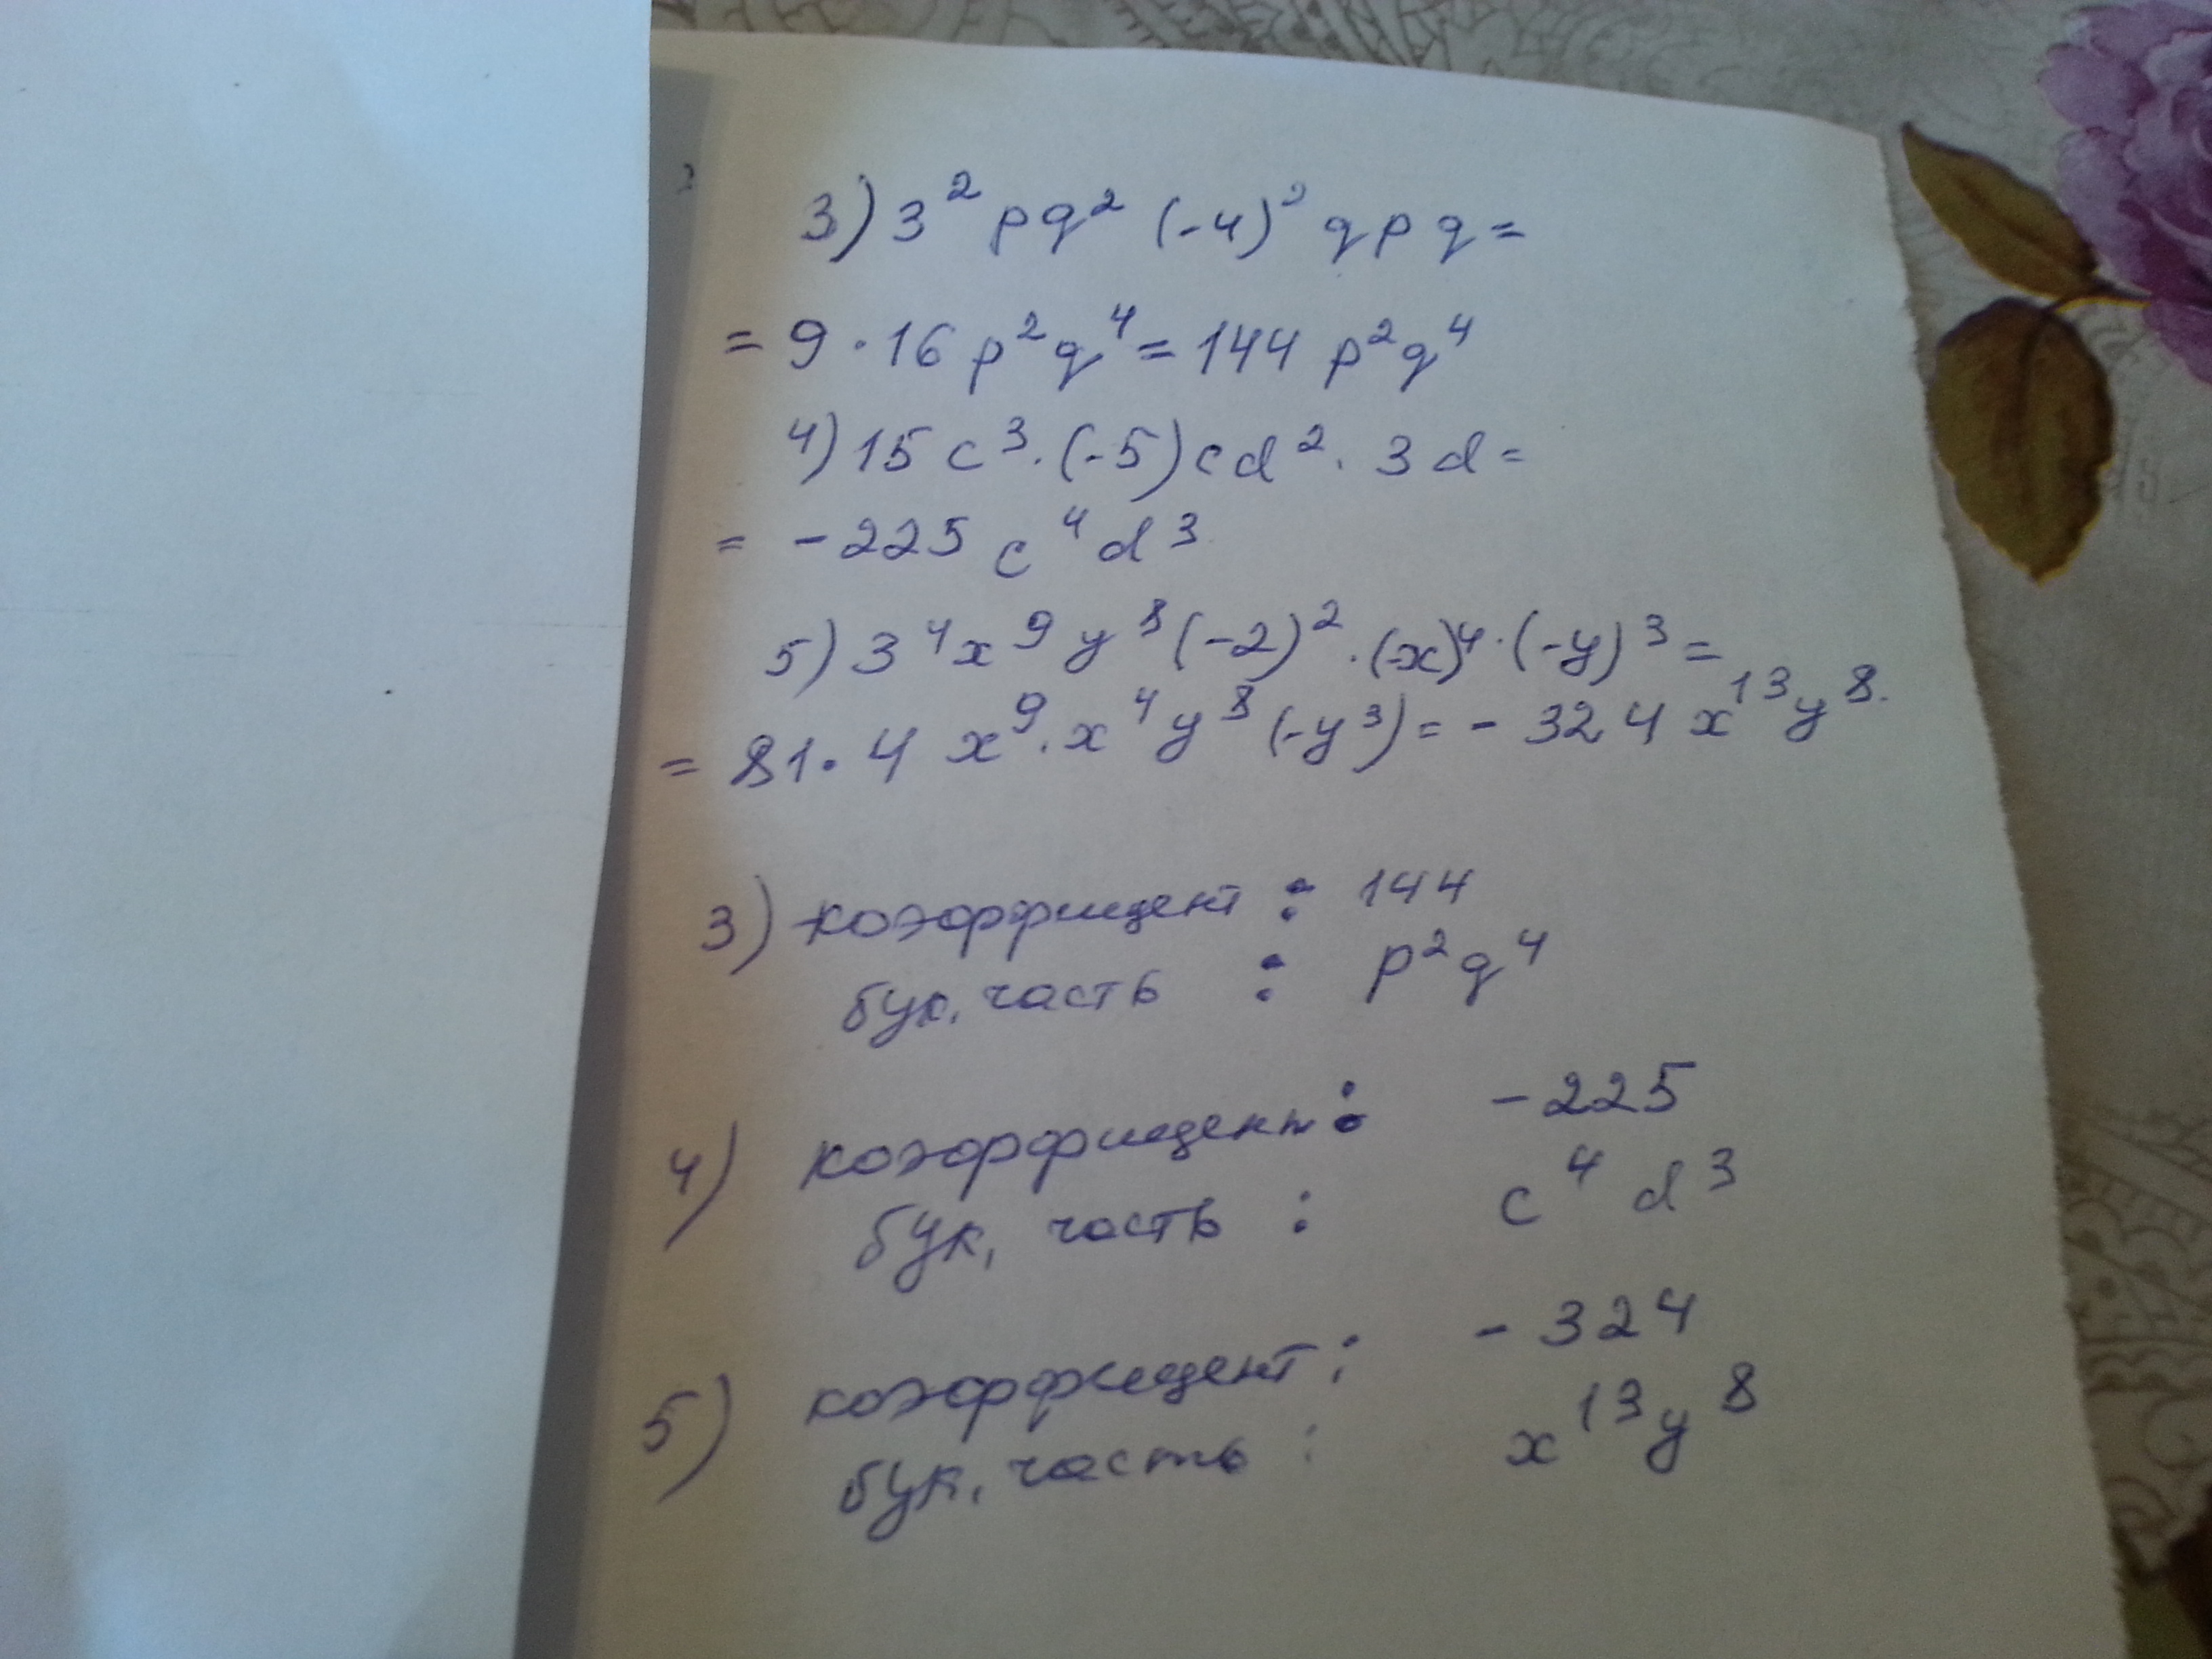 3) 3² pq² (-4)² qpq=
= 9 · 16 p²q⁴ = 144 p²q⁴
4) 15 c³ · (-5) cd² · 3d =
= - 225 c⁴ d³
5) 3⁴ x⁹ y⁸ (-2)² · (-x)⁴ · (-y)³ =
= 81 · 4 x⁹ · x⁴ y⁸ (-y³) = - 324 x¹³ y⁸.
3) коэффициент : 144
бук. часть : p²q⁴
4) коэффициент : - 225
бук. часть : c⁴ d³
5) коэффициент : - 324
бук. часть : x¹³ y⁸